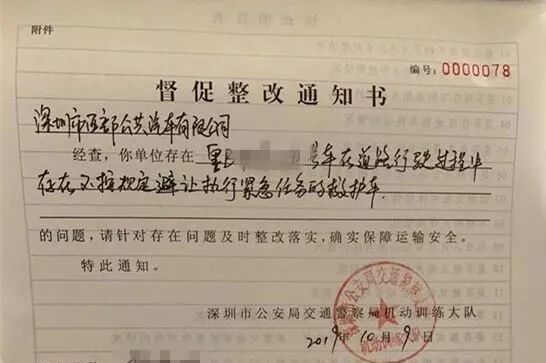 附件
编号：0000078
督促整改通知书
深圳市西部公共汽车有限公司
经查，你单位存在 粤B 号车在道路行驶过程中
存在不按规定避让执行紧急任务的救护车
的问题，请针对存在问题及时整改落实，确实保障运输安全。
特此通知。
深圳市公安局交通警察局机动训练大队
2019年10月9日